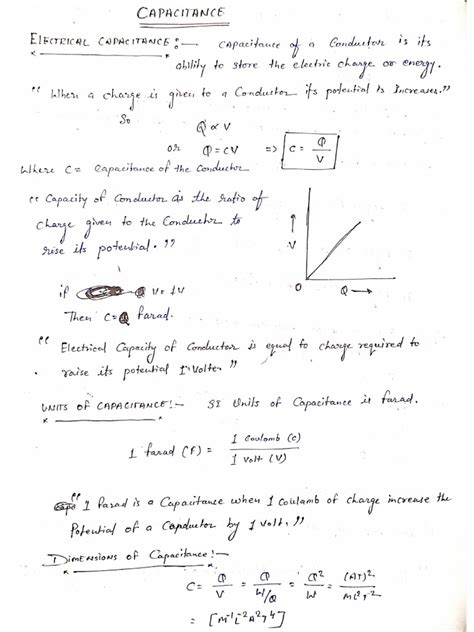 CAPACITANCE
ELECTRICAL CAPACITANCE :— Capacitance of a Conductor is its
ability to store the electric charge or energy.
“ When a charge is given to a Conductor its potential is Increases.”
So
Q ∝ V
or Q = CV => C = Q/V
Where C = Capacitance of the Conductor
“ Capacity of Conductor is the ratio of
charge given to the Conductor to
rise its potential. ”
V
O Q →
if V = 1V
Then C = Q farad.
“ Electrical Capacity of Conductor is equal to charge required to
raise its potential 1 Volte. ”
UNITS OF CAPACITANCE :— SI Units of Capacitance is farad.
1 farad (F) = 1 Coulomb (C) / 1 Volt (V)
“ 1 farad is a Capacitance when 1 Coulamb of charge increase the
Potential of a Conductor by 1 Volt. ”
Dimensions of Capacitance :—
C = Q/V = Q/W/Q = Q²/W = (AT)²/ML²T⁻²
= [M⁻¹L⁻²A²T⁴]